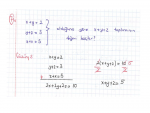 x+y=2
y+z=3
x+z=5
olduğuna göre x+y+z toplamının
değeri kaçtır?
Çözüm:
x+y=2
y+z=3
+ x+z=5
2x+2y+2z=10
2(x+y+z)=10
2 2
x+y+z=5